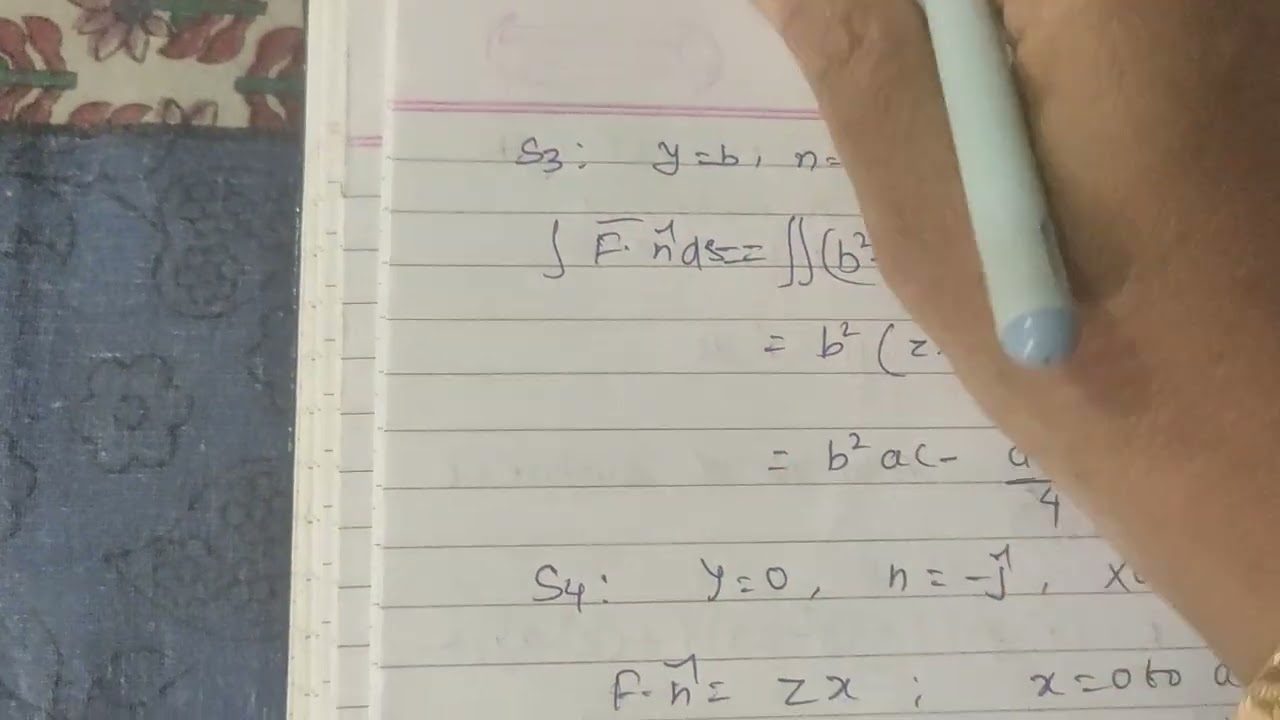 S3: y=b, n=
∫ F̅. n⃗ ds== ∬(b²
= b² (z
= b² ac- a/4
S4: y=0, n = -j⃗, x
F. n⃗ = zx ; x=0 to a